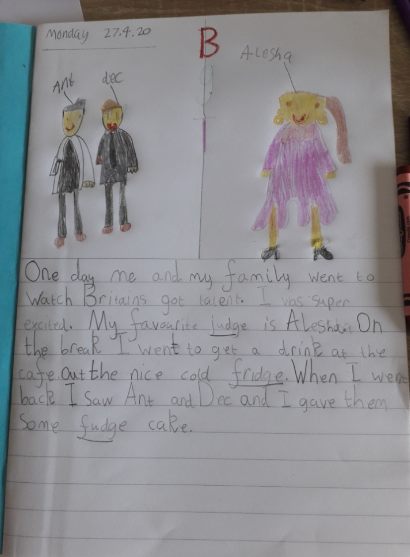 Monday 27.4.20
B
Ant
dec
Alesha
One day me and my family went to
watch Britains got talent. I was super
excited. My favourite judge is Alesha. On
the break I went to get a drink at the
cafe out the nice cold fridge. When I went
back I saw Ant and Dec and I gave them
some fudge cake.